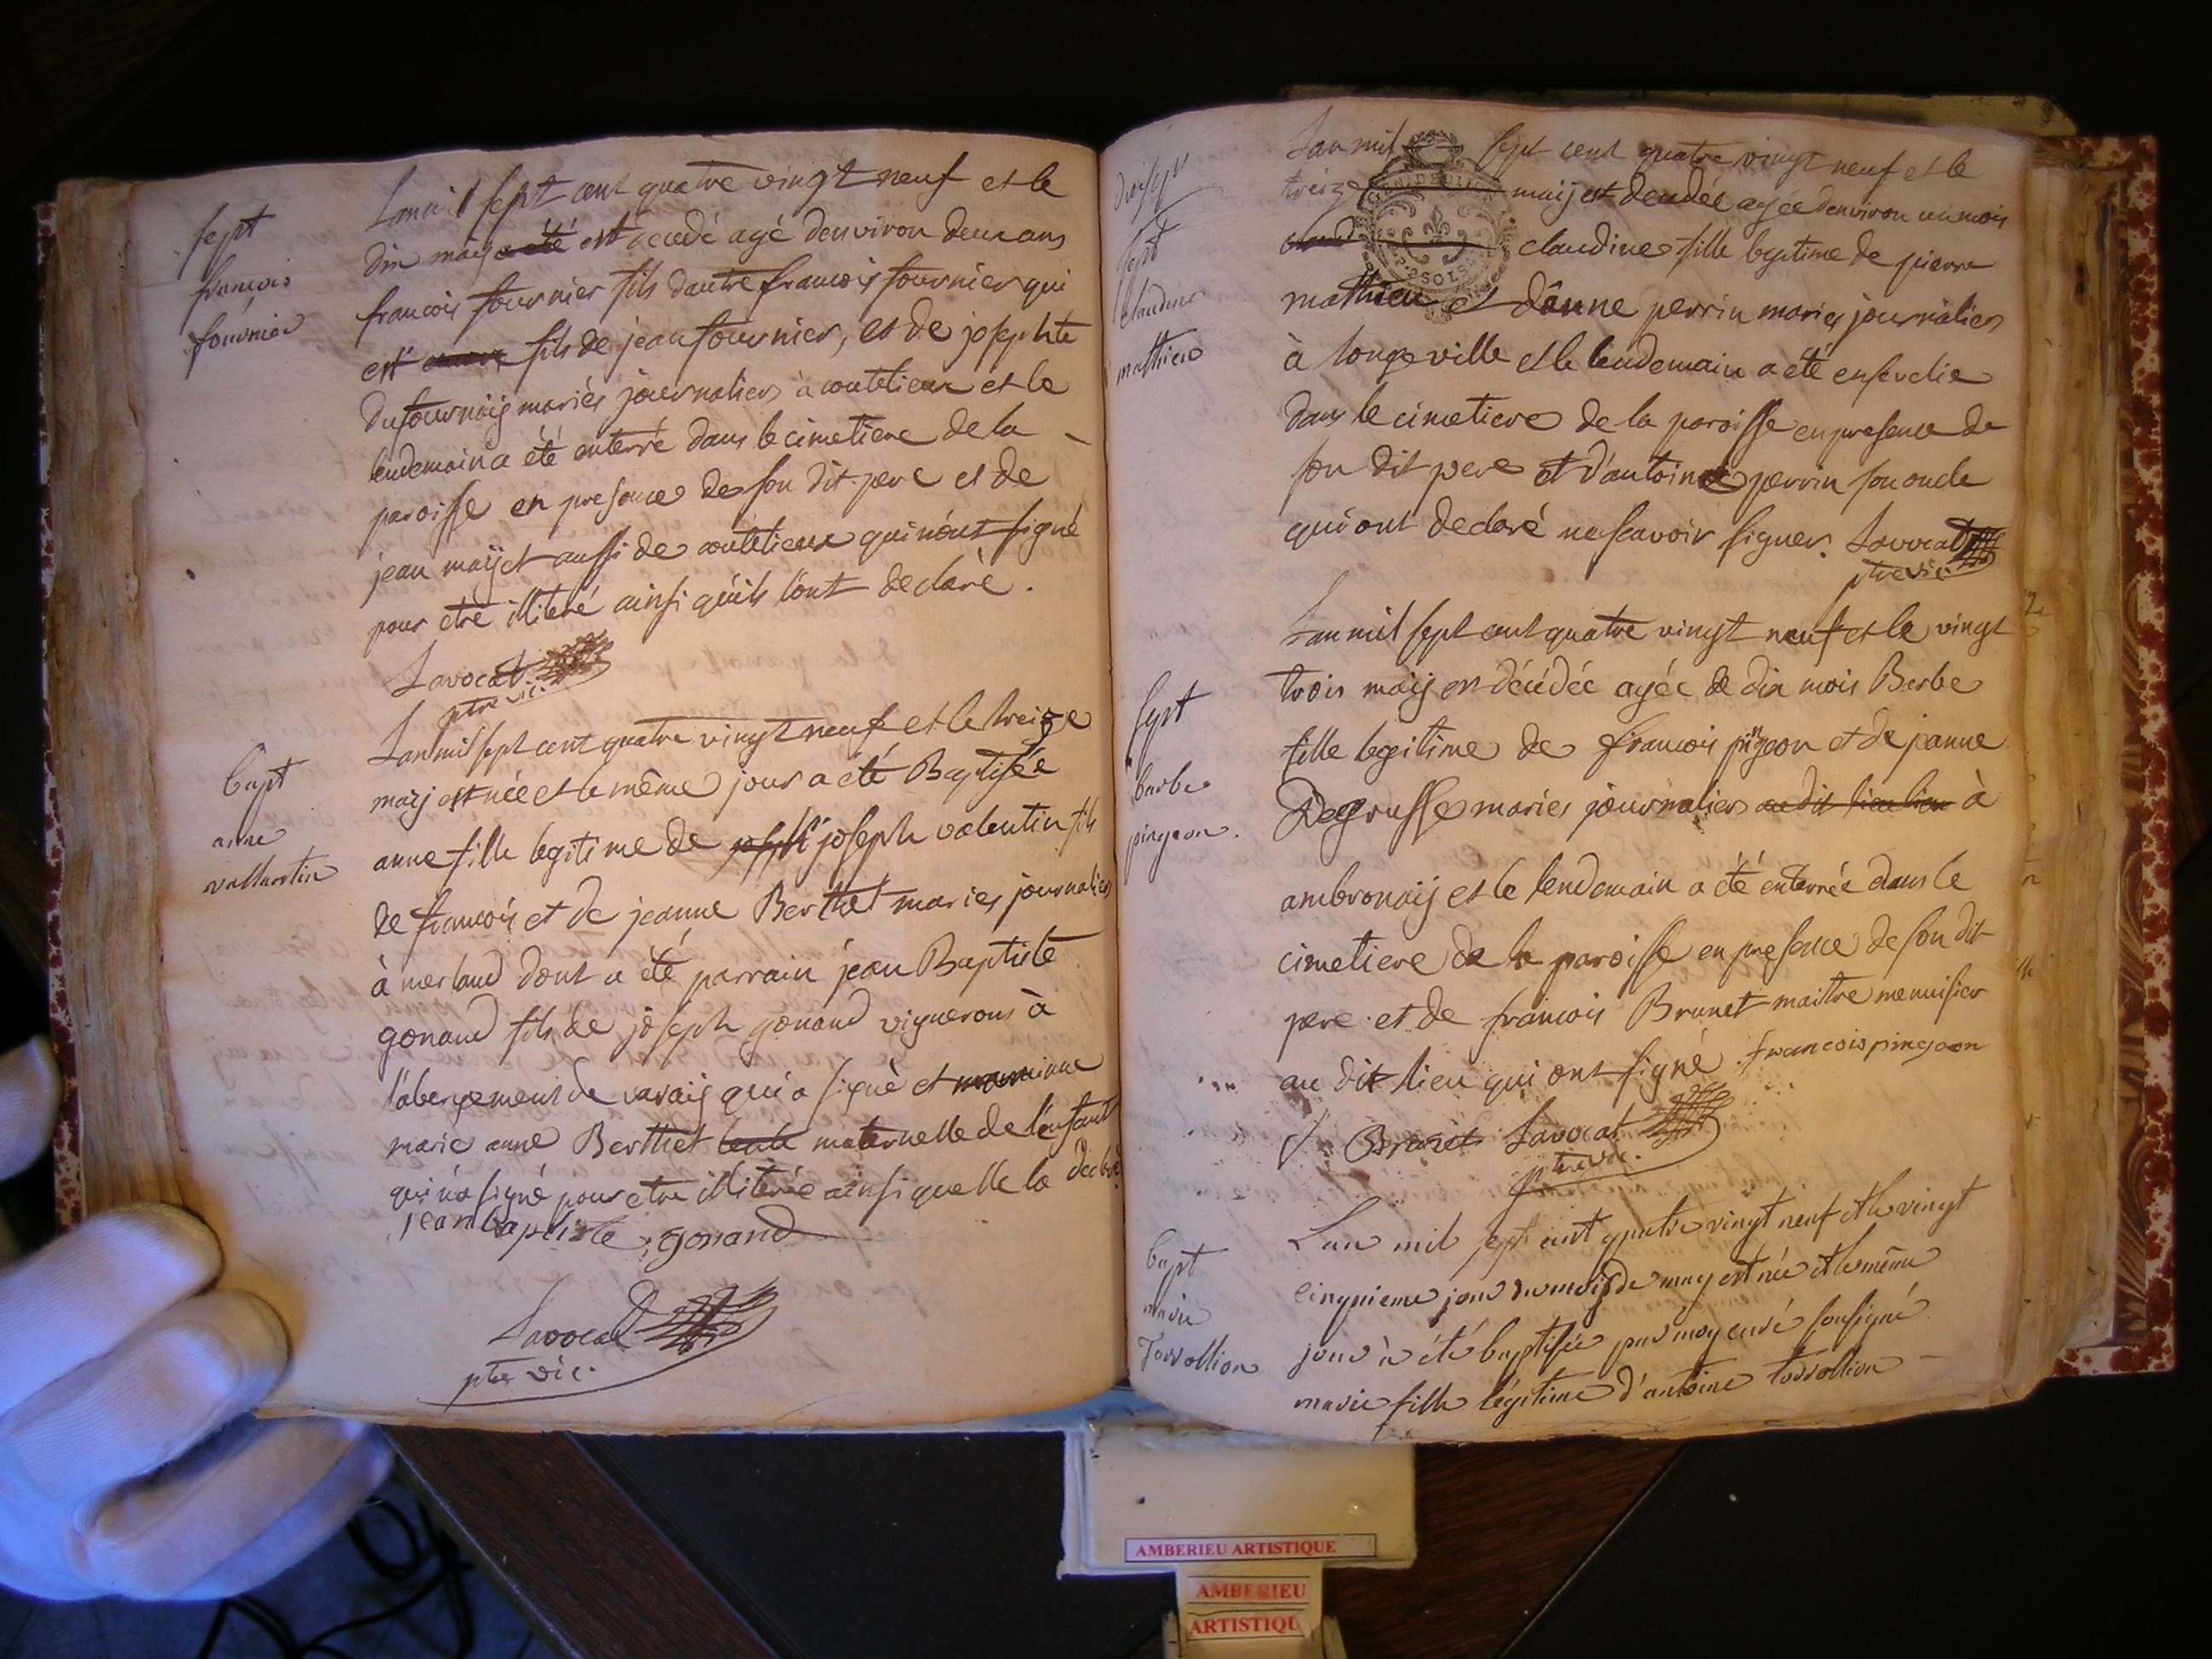 sept
françois
fournier
Lan mil sept cent quatre vingt neuf et le
dix maij a été est decedé agé denviron deux ans
francois fournier fils dautre francois fournier qui
est fils de jean fournier, et de josephte
Dufournaij mariés journaliers à coutelieux et le
lendemain a été enterré dans le cimetiere de la
paroisse en presence de son dit pere et de
jean maijet aussi de coutelieux qui n'ont signé
pour etre illiteré ainsi qu'ils l'ont declaré.
Lavocat
ptre vic.
bapt
anne
vallantin
Lan mil sept cent quatre vingt neuf et le treize
maij est née et le même jour a été Baptisée
anne fille legitime de joseph joseph valentin fils
de francois et de jeanne Berthet maries journaliers
à merland dont a été parrain jean Baptiste
gonand fils de joseph gonand vignerons à
l'abergement de varaij qui a signé et
marie anne Berthet tante maternelle de l'enfant
qui n'a signé pour etre illiterée ainsi quelle la declaré
jean baptiste gonand
Lavocat
ptre vic.
sept
claudine
mathieu
Lan mil sept cent quatre vingt neuf et le
treize maij est decedée agée denviron un mois
claudine fille legitime de pierre
mathieu et d'anne perrin mariés journaliers
à longeville et le lendemain a été ensevelie
dans le cimetiere de la paroisse en presence de
son dit pere et d'antoine perrin son oncle
qui ont declaré ne scavoir signer. Lavocat
ptre vic.
sept
barbe
pingeon.
Lan mil sept cent quatre vingt neuf et le vingt
trois maij est décédée agée de dix mois Berbe
fille legitime de francois pingeon et de jeanne
Degrusse maries journaliers au dit lieu lieu à
ambronaij et le lendemain a été enterrée dans le
cimetiere de la paroisse en presence de son dit
pere et de francois Brunet maitre menuisier
au dit lieu qui ont signé. francois pingeon
f Brunet Lavocat
ptre vic.
bapt
marie
Torrollion
Lan mil sept cent quatre vingt neuf et le vingt
cinquieme jour du mois de may est née et le même
jour à été baptisée par moy curé soussigné
marie fille légitime d'antoine torrollion
2 SOLS
AMBERIEU ARTISTIQUE
AMBERIEU
ARTISTIQU